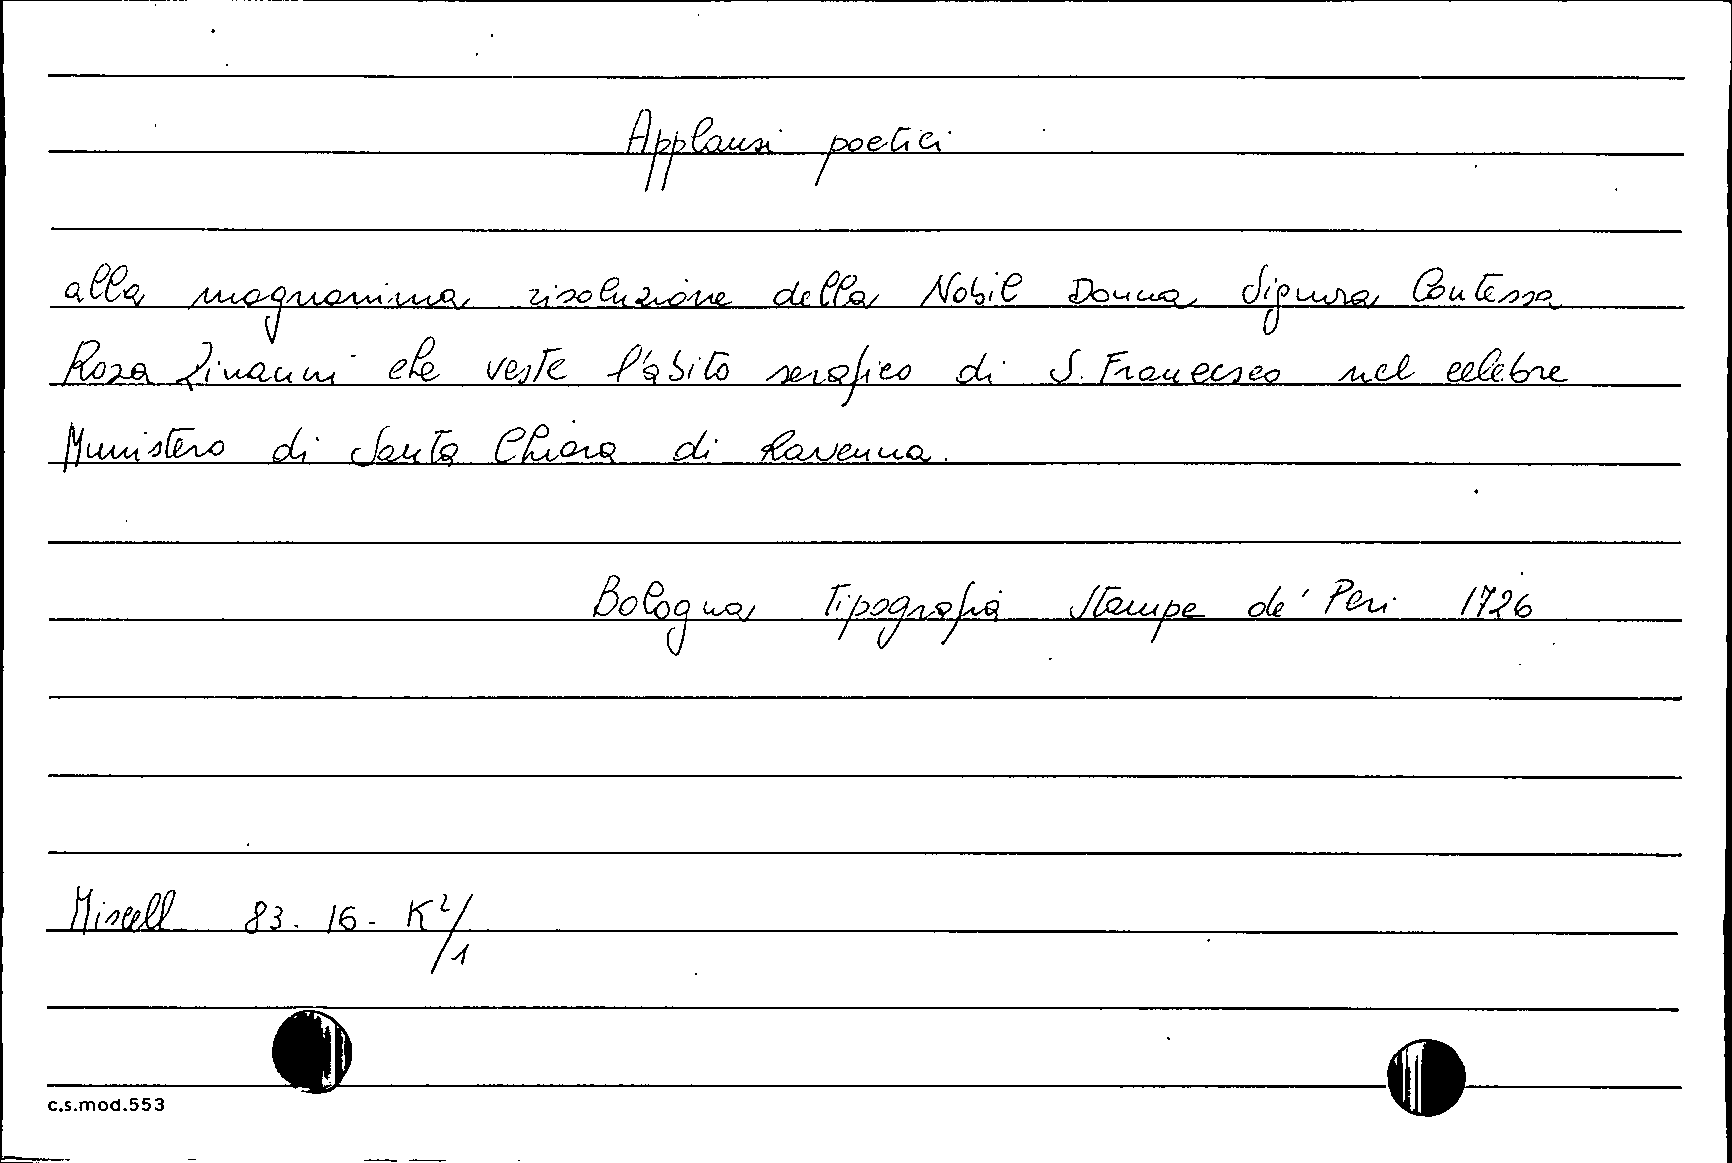 Applausi poetici
alla magnanima risoluzione della Nobil Donna Signora Contessa
Rosa Zinanni che veste l'abito serafico di S. Francesco nel celebre
Munistero di Santa Chiara di Ravenna.
Bologna Tipografia Stampe de' Peri 1726
Miscell 83. 16 - K²/1
c.s.mod.553